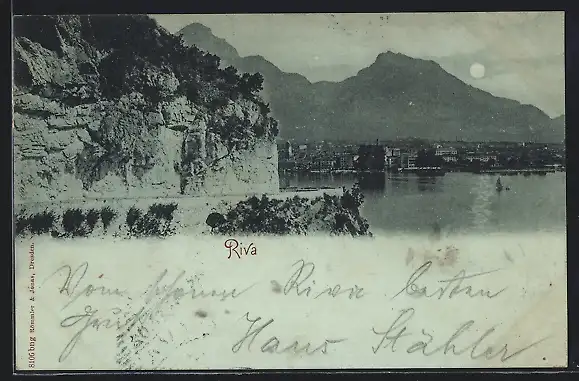 Riva
Vom schönen Riva besten
Gruß
Hans Stähler
8106 büg Römmler & Jonas, Dresden.